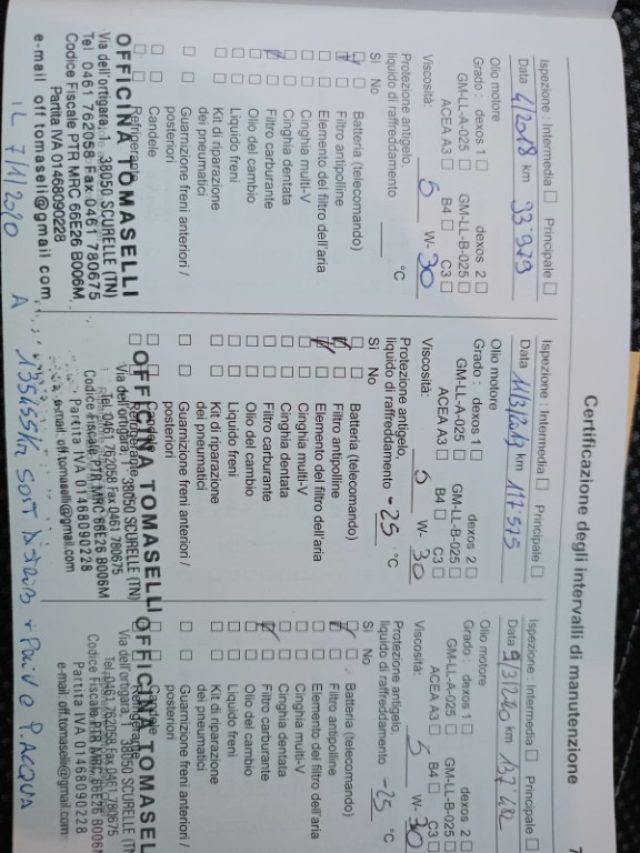 Certificazione degli intervalli di manutenzione
7
Ispezione : Intermedia Principale
Data 4/2018 km 93'979
Olio motore
Grado : dexos 1 dexos 2
GM-LL-A-025 GM-LL-B-025
ACEA A3 B4 C3
Viscosità: 5 W- 30
Protezione antigelo,
liquido di raffreddamento °C
Sì No
Batteria (telecomando)
Filtro antipolline
Elemento del filtro dell'aria
Cinghia multi-V
Cinghia dentata
Filtro carburante
Olio del cambio
Liquido freni
Kit di riparazione
dei pneumatici
Guarnizione freni anteriori /
posteriori
Candele
Refrigerante
OFFICINA TOMASELLI
Via dell'ortigara, 38050 SCURELLE (TN)
Tel 0461 762058 Fax 0461 780675
Codice Fiscale PTR MRC 66E26 B006M
Partita IVA 01468090228
e-mail off tomaselli@gmail com
Ispezione : Intermedia Principale
Data 11/3/2019 km 117.515
Olio motore
Grado : dexos 1 dexos 2
GM-LL-A-025 GM-LL-B-025
ACEA A3 B4 C3
Viscosità: 5 W- 30
Protezione antigelo,
liquido di raffreddamento -25 °C
Sì No
Batteria (telecomando)
Filtro antipolline
Elemento del filtro dell'aria
Cinghia multi-V
Cinghia dentata
Filtro carburante
Olio del cambio
Liquido freni
Kit di riparazione
dei pneumatici
Guarnizione freni anteriori /
posteriori
Candele
Refrigerante
OFFICINA TOMASELLI
Via dell'ortigara, 38050 SCURELLE (TN)
Tel. 0461 762058 Fax 0461 780675
Codice Fiscale PTR MRC 66E26 B006M
Partita IVA 01468090228
e-mail: off.tomaselli@gmail.com
Ispezione : Intermedia Principale
Data 9/3/2020 km 137.482
Olio motore
Grado : dexos 1 dexos 2
GM-LL-A-025 GM-LL-B-025
ACEA A3 B4 C3
Viscosità: 5 W- 30
Protezione antigelo,
liquido di raffreddamento -25 °C
Sì No
Batteria (telecomando)
Filtro antipolline
Elemento del filtro dell'aria
Cinghia multi-V
Cinghia dentata
Filtro carburante
Olio del cambio
Liquido freni
Kit di riparazione
dei pneumatici
Guarnizione freni anteriori /
posteriori
Candele
Refrigerante
OFFICINA TOMASELLI
Via dell'ortigara, 38050 SCURELLE (TN)
Tel. 0461 762058 Fax 0461 780675
Codice Fiscale PTR MRC 66E26 B006M
Partita IVA 01468090228
e-mail: off.tomaselli@gmail.com
IL 7/1/2020 A 135455 Km SOST + P.ACQUA